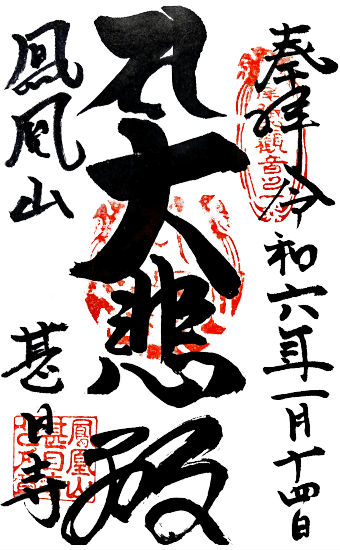 奉拝
令和六年一月十四日
大悲殿
鳳凰山
甚目寺
鳳凰山
甚目寺